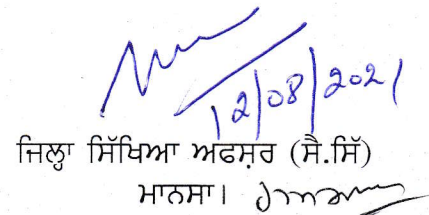 12/08/2021
ਜਿਲ੍ਹਾ ਸਿੱਖਿਆ ਅਫਸ਼ਰ (ਸੈ.ਸਿੱ)
ਮਾਨਸਾ।